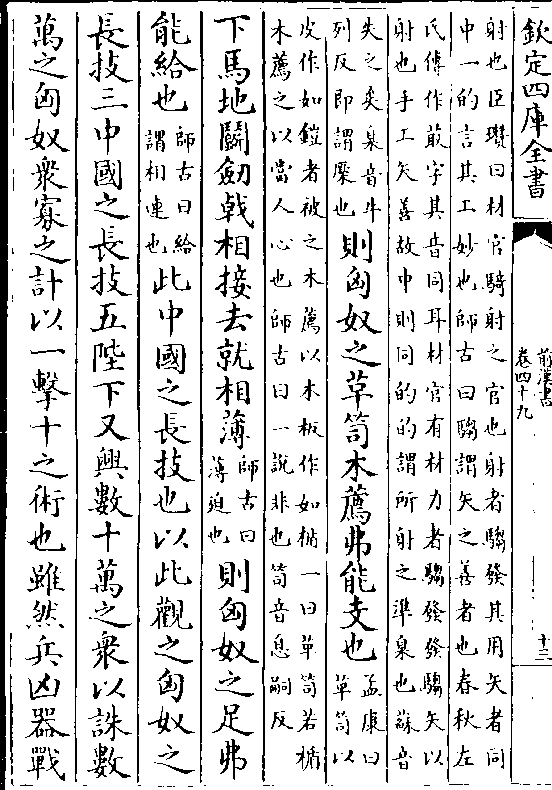 欽定四庫全書
前漢書
卷四十九
十三
射也臣瓚曰材官騎射之官也射者騶發其用矢者同
中一的言其工妙也師古曰騶謂矢之善者也春秋左
氏傳作菆字其音同耳材官有材力者騶發發騶矢以
射也手工矢善故中則同的的謂所射之準臬也蘇音
失之矣臬音牛
列反即謂麋也
則匈奴之草笥木薦弗能支也
孟康曰
草笥以
皮作如鎧者被之木薦以木板作如楯一曰草笥若楯
木薦之以當人心也師古曰一說非也笥音息嗣反
下馬地鬬劒戟相接去就相薄
師古曰
薄迫也
則匈奴之足弗
能給也
師古曰給
謂相連也
此中國之長技也以此觀之匈奴之
長技三中國之長技五陛下又興數十萬之衆以誅數
萬之匈奴衆寡之計以一擊十之術也雖然兵凶器戰